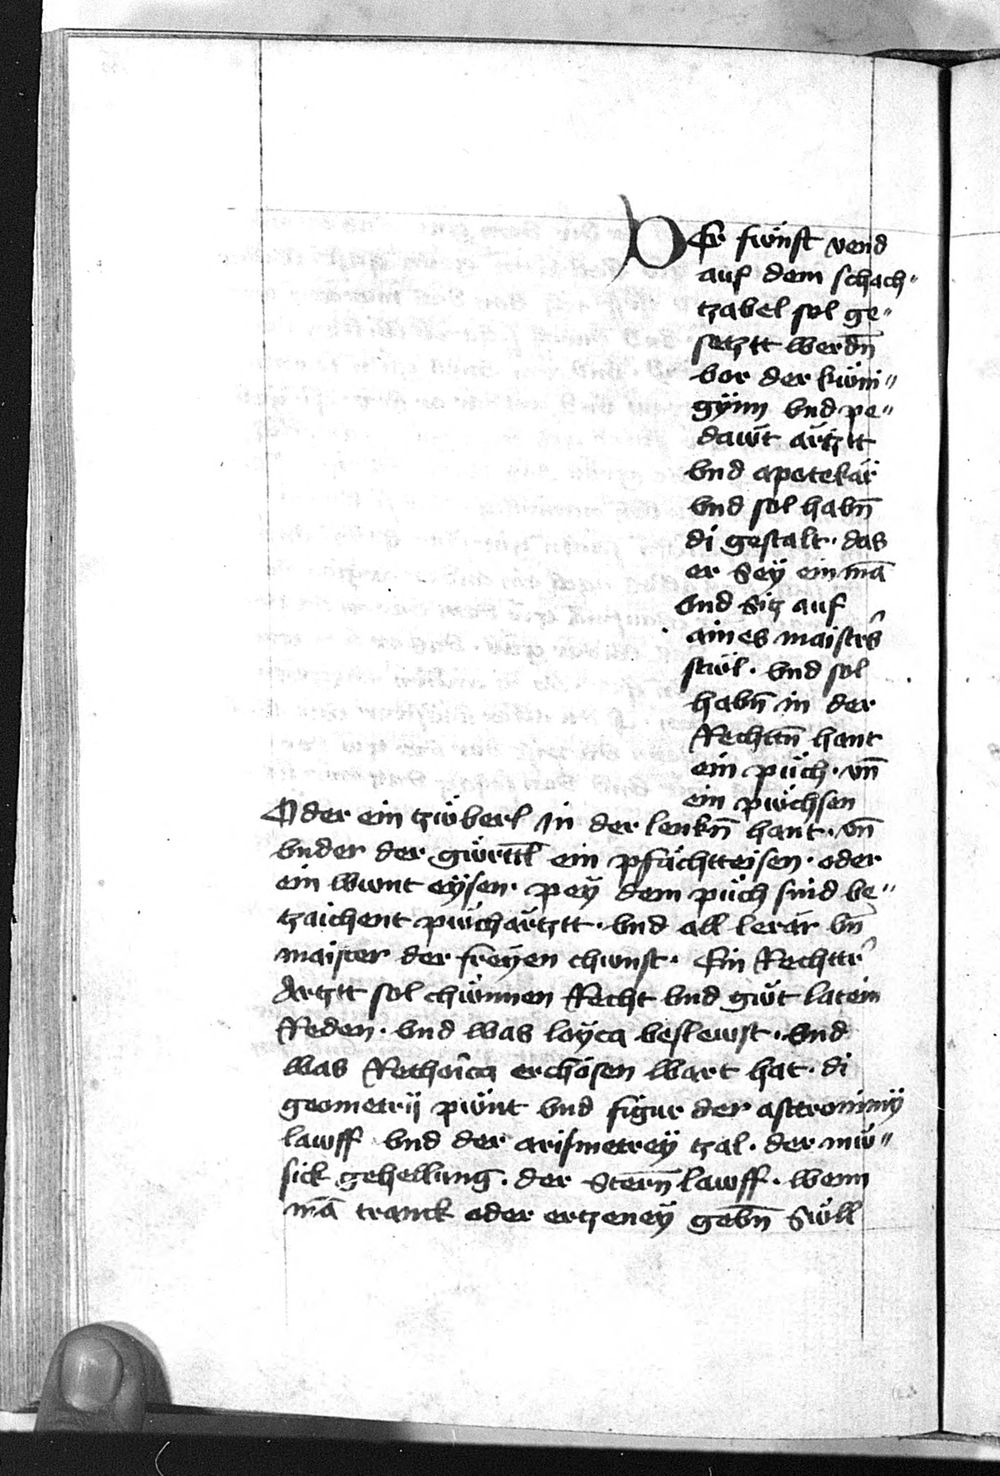 DEr fünft vend
auf dem schach-
tzabel sol ge-
setztt werdn̄
vor der küni-
gÿnn vnd pe-
dawt̄ artztt
vnd apotekär
vnd sol habn̄
di gestalt · das
er seÿ ein mā
vnd sitz auf
aines maisters
stŵl · vnd sol
habn̄ in der
Rechttn̄ hant
ein püch · vn̄
ein püchsen
Oder ein tzüberl in der lenkn̄ hant · vn̄
vnder der gürttl̄ ein pfächtteisen · oder
ein wunt eÿsen · peÿ dem püch sind be-
tzaichent püchärtztt · vnd all lerär vn̄
maister der freÿen chunst · Ein Rechttr
Artztt sol chünnen Recht vnd güt latein
Reden · vnd was loÿca beslewst · vnd
was Rethorica erchösen wart hat · di
geometrij pünt vnd figur der asttronimÿ
lawff vnd der arismetreÿ tzal · der mü-
sick gehellung · der Stern̄ lawff · wenn
mā tranck oder ertzeneÿ gebn̄ süll